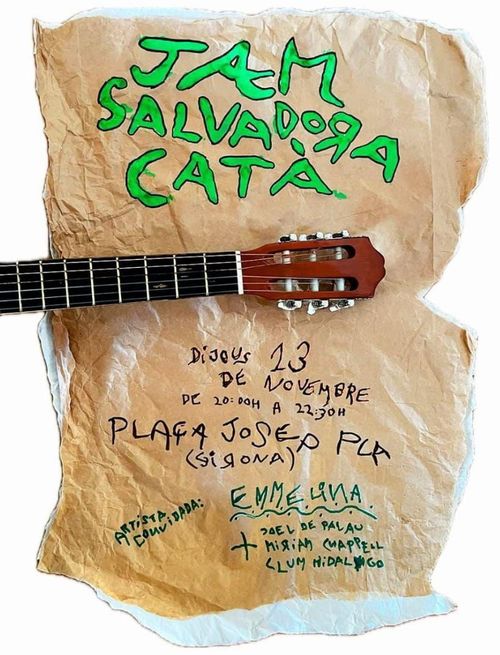 JAM
SALVADORA
CATÀ
DIJOUS 13
DE NOVEMBRE
DE 20:00H A 22:30H
PLAÇA JOSEP PLA
(GIRONA)
ARTISTA
CONVIDADA:
EMMELINA
JOEL DE PALAU
+ MIRIAM CHAPPELL
LLUM HIDALGO